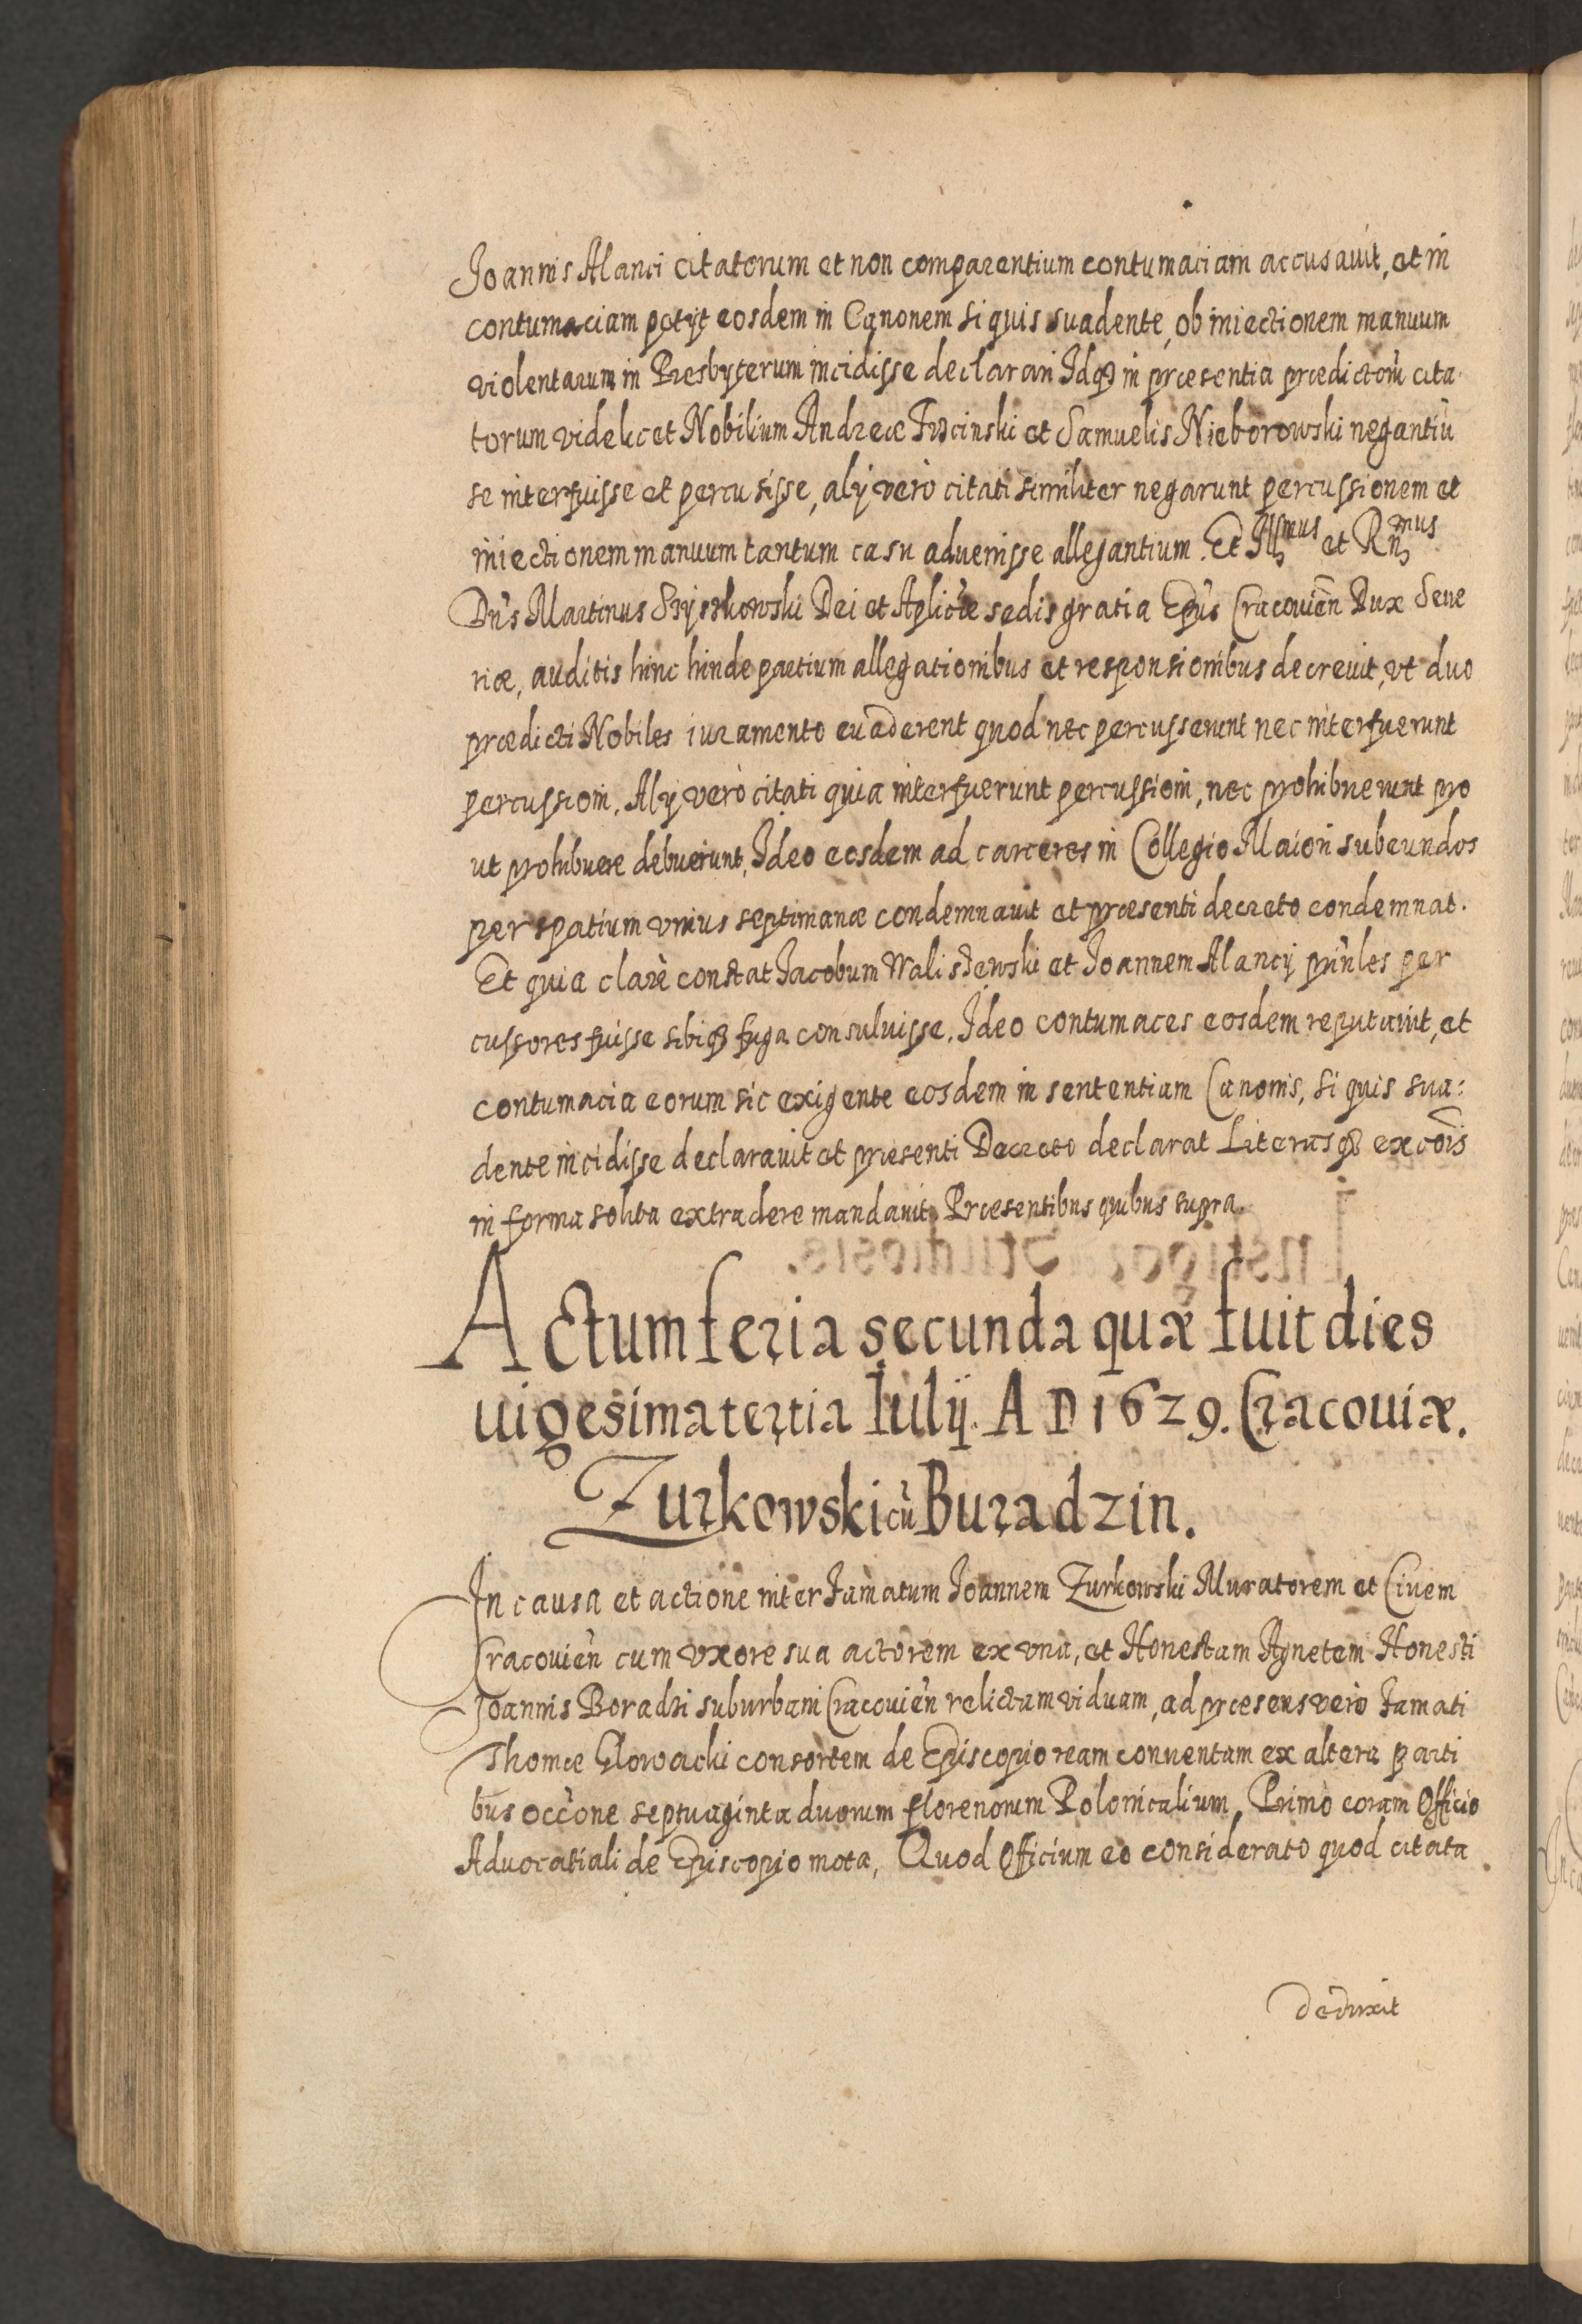 Joannis Alanci citatorum et non comparentium contumaciam accusauit, et in
contumaciam petijt eosdem in Canonem si quis suadente, ob iniectionem manuum
violentarum in Presbyterum incidisse declarari Idq3 in præsentia prædictorũ cita
torum videlicet Nobilium Andreæ et Samuelis Nieborowski negantiũ
se interfuisse et percusisse, alÿ verò citati similiter negarunt percussionem et
iniectionem manuum tantum casu aduenisse allegantium. Et Illmus et Rñmus
Dñs Martinus Szyszkowski Dei et Aplicæ sedis gratia Epũs Cracouieñ Dux Seue
riæ, auditis hinc hinde partium allegationibus et responsionibus decreuit, vt duo
prædicti Nobiles iuramento euaderent quod nec percusserunt nec interfuerunt
percussioni, Alÿ verò citati quia interfuerunt percussioni, nec prohibuerunt pro
ut prohibuere debuerunt, Ideo eosdem ad carceres in Collegio Maiori subeundos
per spatium vnius septimanæ condemnauit et præsenti decreto condemnat.
Et quia clarè constat Jacobum Waliszewski et Joannem Alancÿ prin̄les per
cussores fuisse sibiq3 fuga consuluisse, Ideo contumaces eosdem reputauit, et
contumacia eorum sic exigente eosdem in sententiam Canonis, si quis sua:
dente incidisse declarauit et præsenti Decreto declarat Literasq3 excõis
in forma solita extradere mandauit, Præsentibus quibus supra.
Actum feria secunda quæ fuit dies
uigesima tertia Iulÿ. A D 1629. Cracouiæ.
Zurkowski cũ Buradzin.
In causa et actione inter Famatum Joannem Zurkowski Muratorem et Ciuem
Cracouieñ cum vxore sua actorem ex vna, et Honestam Agnetem Honesti
Joannis Boradzi suburbani Cracouieñ relictam viduam, ad præsens verò Famati
Thomæ Glowacki consortem de Episcopio ream conuentam ex altera parti
bus occõne septuaginta duorum florenorum Polonicalium, Primò coram Officio
Aduocatiali de Episcopio mota, Quod Officium eo considerato quod citata
deduxit